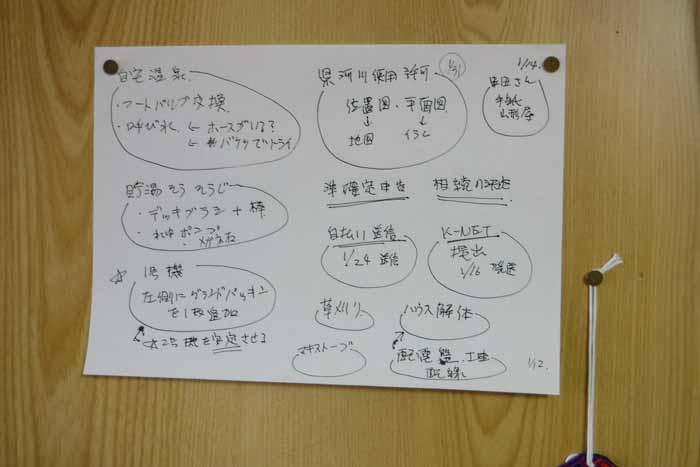 自宅温泉
・フートバルブ交換
・呼び水 ← ホースがいる?
← 水バケツでトライ
貯湯そうそうじ
・デッキブラシ + 棒
・水中ポンプ
・メガネ石
☆ 1号機
左側にグランドパッキン
を1枚追加
☆2号機を安定させる
県河川使用許可 1/31
位置図・平面図
↓ ↓
地図 イラレ
準確定申告
相続川決定
1/24 送信
K-NET
提出
1/16 発送
草刈り
ハウス解体
マキストーブ
配電盤
断線
1/14.
手紙
山形屋
1/12.